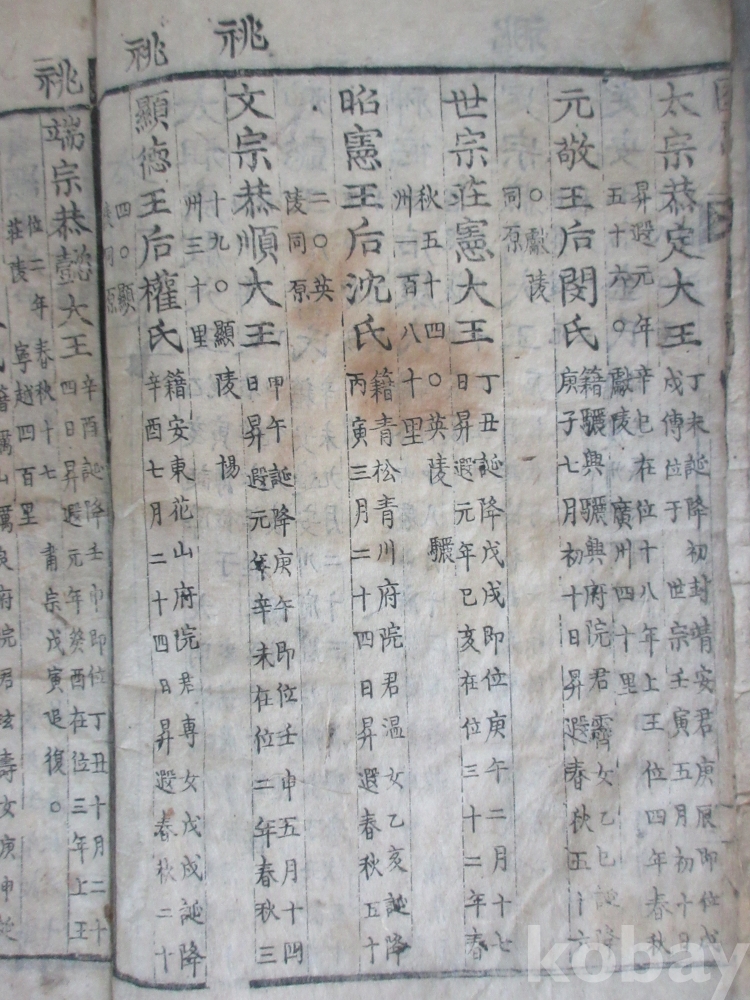 太宗恭定大王
丁未誕降初封靖安君庚辰即位戊
戌傳位于 世宗壬寅五月初十日
昇遐元年辛巳在位十八年上王位四年春秋
五十六○獻陵 廣州四十里
元敬王后閔氏
籍驪興驪興府院君霽女乙巳誕降
庚子七月初十日昇遐春秋五十六
○獻陵
同原
世宗莊憲大王
丁丑誕降戊戌即位庚午二月十七
日昇遐元年己亥在位三十二年春
秋五十四○英陵 驪
州一百八十里
昭憲王后沈氏
籍青松青川府院君温女乙亥誕降
丙寅三月二十四日昇遐春秋五十
二○英
陵同原
祧
文宗恭順大王
甲午誕降庚午即位壬申五月十四
日昇遐元年辛未在位二年春秋三
十九○顯陵 楊
州三十里
祧
顯德王后權氏
籍安東花山府院君專女戊戌誕降
辛酉七月二十四日昇遐春秋二十
四○顯
陵同原
祧
端宗恭懿大王
辛酉誕降壬申即位丁丑十月二十
四日昇遐元年癸酉在位三年上王
位二年春秋十七 肅宗戊寅追復○
莊陵 寧越四百里
籍礪山礪良府院君玹壽女庚申誕
kobay